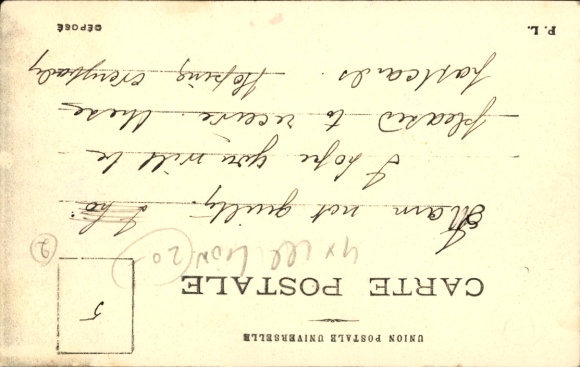 UNION POSTALE UNIVERSELLE
CARTE POSTALE
5
(20)
2
Mann not guilty. I ho
I hope you will be
pleased to receive these
postcards. Hoping everybody
P. L. DÉPOSÉ